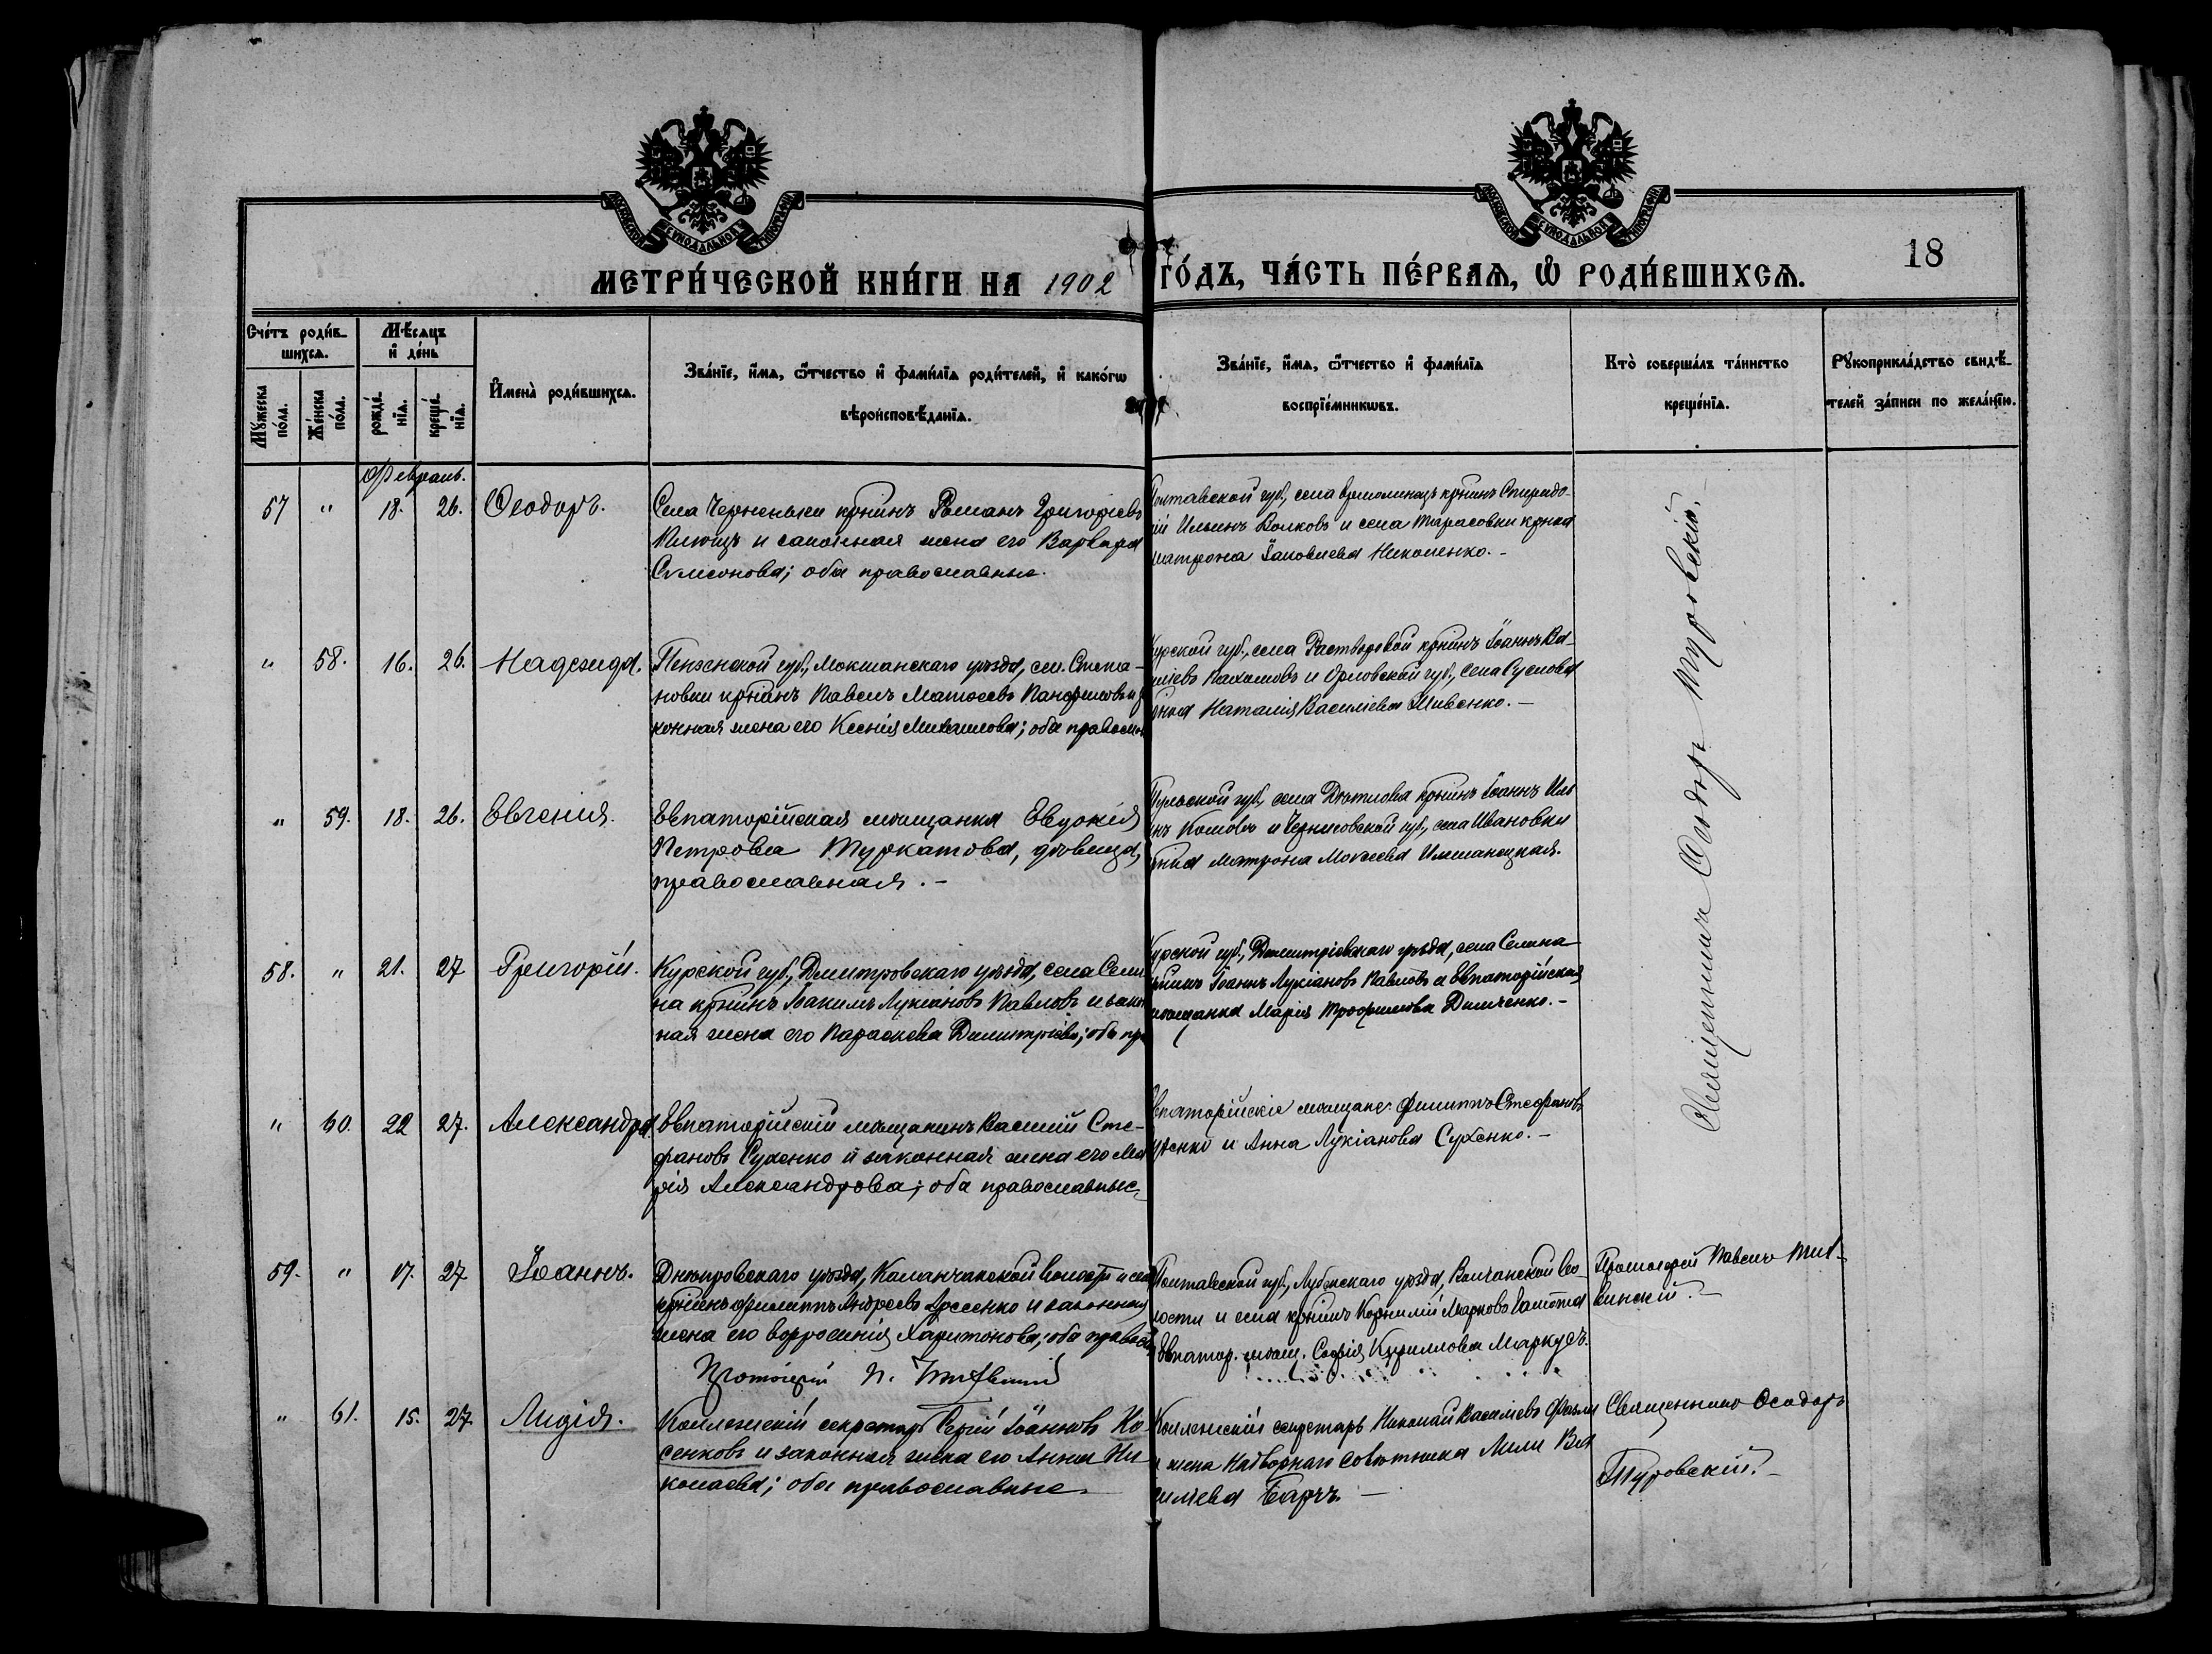 МОСКОВСКОЙ СѴНОДАЛЬНОЙ ТИПОГРАФІИ
МОСКОВСКОЙ СѴНОДАЛЬНОЙ ТИПОГРАФІИ
18
МЕТРИ́ЧЕСКОЙ КНИ́ГИ НА 1902 ГО́ДЪ, ЧА́СТЬ ПЕ́РВАѦ, Ѡ РОДИ́ВШИХСѦ.
Сче́тъ роди́в-
шихсѧ.
Мѣ́сѧцъ
и де́нь
Мꙋжеска по́ла.
Же́нска по́ла.
рожде́нїѧ.
креще́нїѧ.
Имена̀ роди́вшихсѧ.
Зва́нїе, и́мѧ, ѻ́тчество и фами́лїѧ роди́телей, и како́гѡ
вѣроисповѣ́данїѧ.
Зва́нїе, и́мѧ, ѻ́тчество и фами́лїѧ
воспрїе́мникѡвъ.
Кто̀ соверша́лъ та́инство
креще́нїѧ.
Рꙋкоприкла́дство свидѣ́-
телей за́писи по жела́нїю.
Февраль.
57 " 18. 26. Ѳеодоръ.
Села Черненьки кр-нинъ Романъ Григоріевъ
и законная жена его Варвара
Сѵмеонова; оба православные.
Полтавской губ., села кр-нинъ Спиридо-
ній Ильинъ Волковъ и села Тарасовки кр-нка
Матрона Іаковлева Николенко. -
" 58. 16. 26. Надежда.
Пензенской губ., Мокшанскаго уѣзда, сел. Степа-
новки кр-нинъ Павелъ Матѳеевъ Панфиловъ и за
конная жена его Ксенія Михаилова; оба правосл
Курской губ., села Растворовой кр-нинъ Іоаннъ Ва-
силіевъ Пахомовъ и Орловской губ., села Суслова
кр-нка Наталія Василіева Пивенко. -
" 59. 18. 26. Евгенія.
Евпаторійская мѣщанка Евдокія
Петрова Туркатова, дѣвица,
православная. -
Тульской губ., села Дѣтлова кр-нинъ Іоаннъ Иль
инъ Комовъ и Черниговской губ., села Ивановки
кр-нка Матрона Мокіева
58. " 21. 27 Григорій.
Курской губ., Дмитровскаго уѣзда, села Сели
на кр-нинъ Іоакимъ Лукіановъ Павловъ и закон
ная жена его Параскева Димитріева; оба пра
Курской губ., Димитріевскаго уѣзда, села Селина
кр-нинъ Іоаннъ Лукіановъ Павловъ и Евпаторійская
мѣщанка Марія Трофимова Димченко. -
Священникъ Ѳеодоръ Туровскій. -
" 60. 22 27. Александра.
Евпаторійскій мѣщанинъ Василій Сте-
фановъ Сухенко и законная жена его Ма
рія Александрова; оба православные.
Евпаторійскіе мѣщане: Филиппъ Стефановъ
Сухенко и Анна Лукіанова Сухенко. -
59. " 17. 27 Іоаннъ.
Днѣпровскаго уѣзда, Каланчакской волости и села
кр-нинъ Филиппъ Андреевъ и законная
жена его Харитонова; оба правосл
Протоіерей П. Тихвинскій
Полтавской губ., Лубенскаго уѣзда, во-
лости и села кр-нинъ Корнилій Марковъ
Евпатор. мѣщ. Софія Кириллова Маркусъ.
Протоіерей Павелъ Тих-
винскій. -
" 61. 15. 27. Лидія.
Коллежскій секретарь Сергій Іоанновъ Ко-
сенковъ и законная жена его Анна Ни
колаева; оба православные.
Коллежскій секретарь Николай Василіевъ
и жена Надворнаго совѣтника Ва
силіева Барчъ. -
Священникъ Ѳеодоръ
Туровскій. -